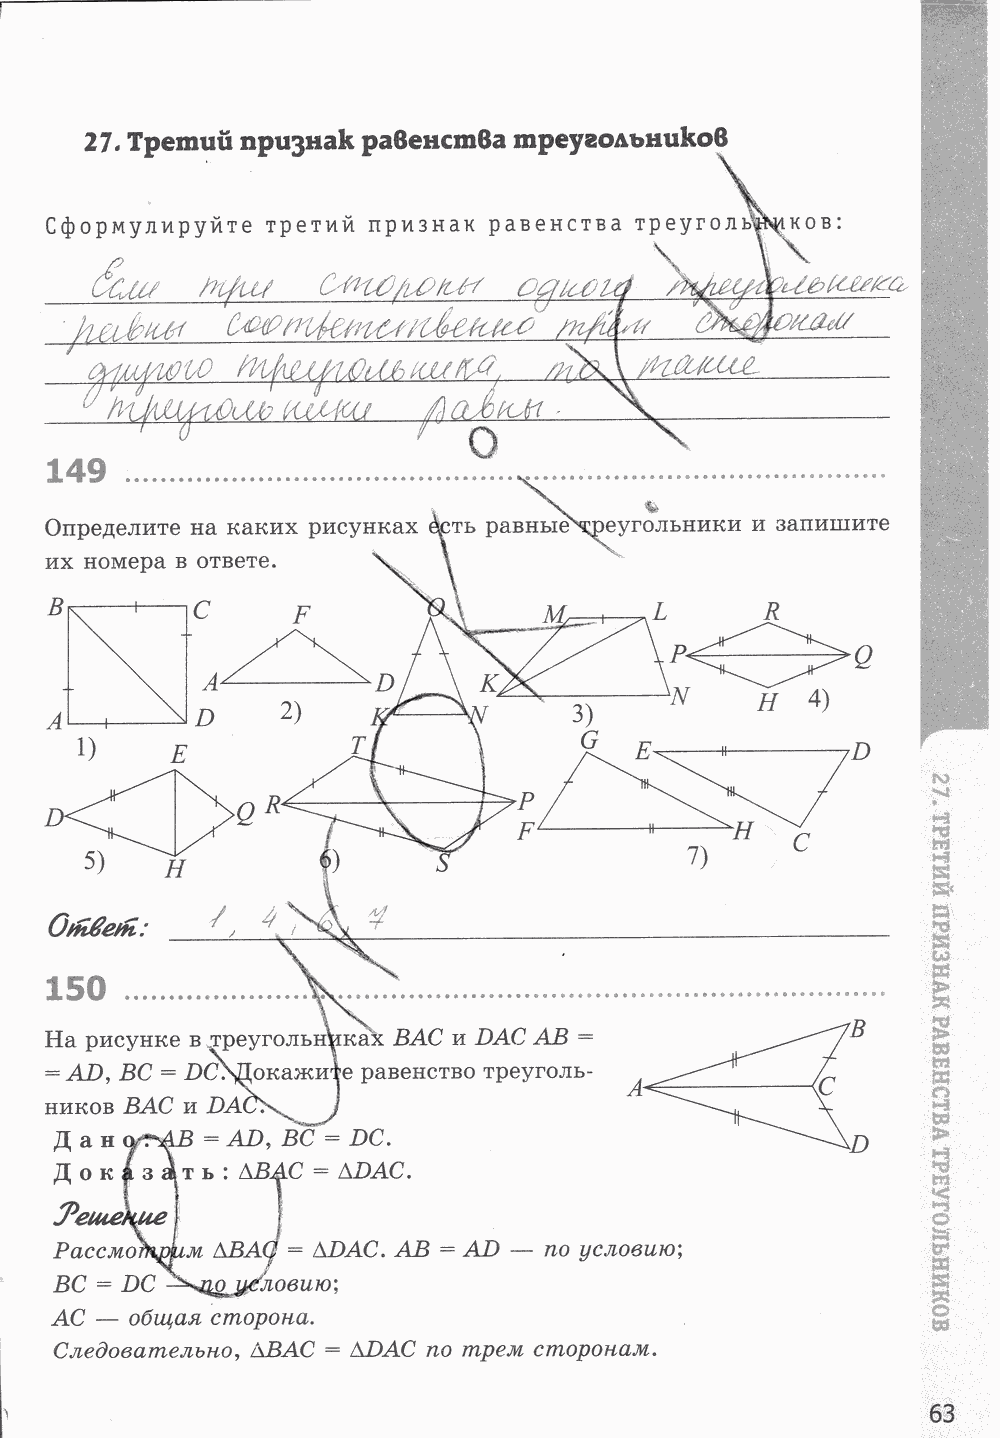 27. Третий признак равенства треугольников
Сформулируйте третий признак равенства треугольников:
Если три стороны одного треугольника
равны соответственно трём сторонам
другого треугольника, то такие
треугольники равны.
149
Определите на каких рисунках есть равные треугольники и запишите
их номера в ответе.
B C A D 1)
F A D 2)
O K N
M L K N 3)
R P Q H 4)
E D Q H 5)
T R P S 6)
G F H E D C 7)
Ответ: 1, 4, 6, 7
150
На рисунке в треугольниках BAC и DAC AB =
= AD, BC = DC. Докажите равенство треуголь-
ников BAC и DAC.
Дано: AB = AD, BC = DC.
Доказать: △BAC = △DAC.
B A C D
Решение
Рассмотрим △BAC = △DAC. AB = AD — по условию;
BC = DC — по условию;
AC — общая сторона.
Следовательно, △BAC = △DAC по трем сторонам.
27. ТРЕТИЙ ПРИЗНАК РАВЕНСТВА ТРЕУГОЛЬНИКОВ
63